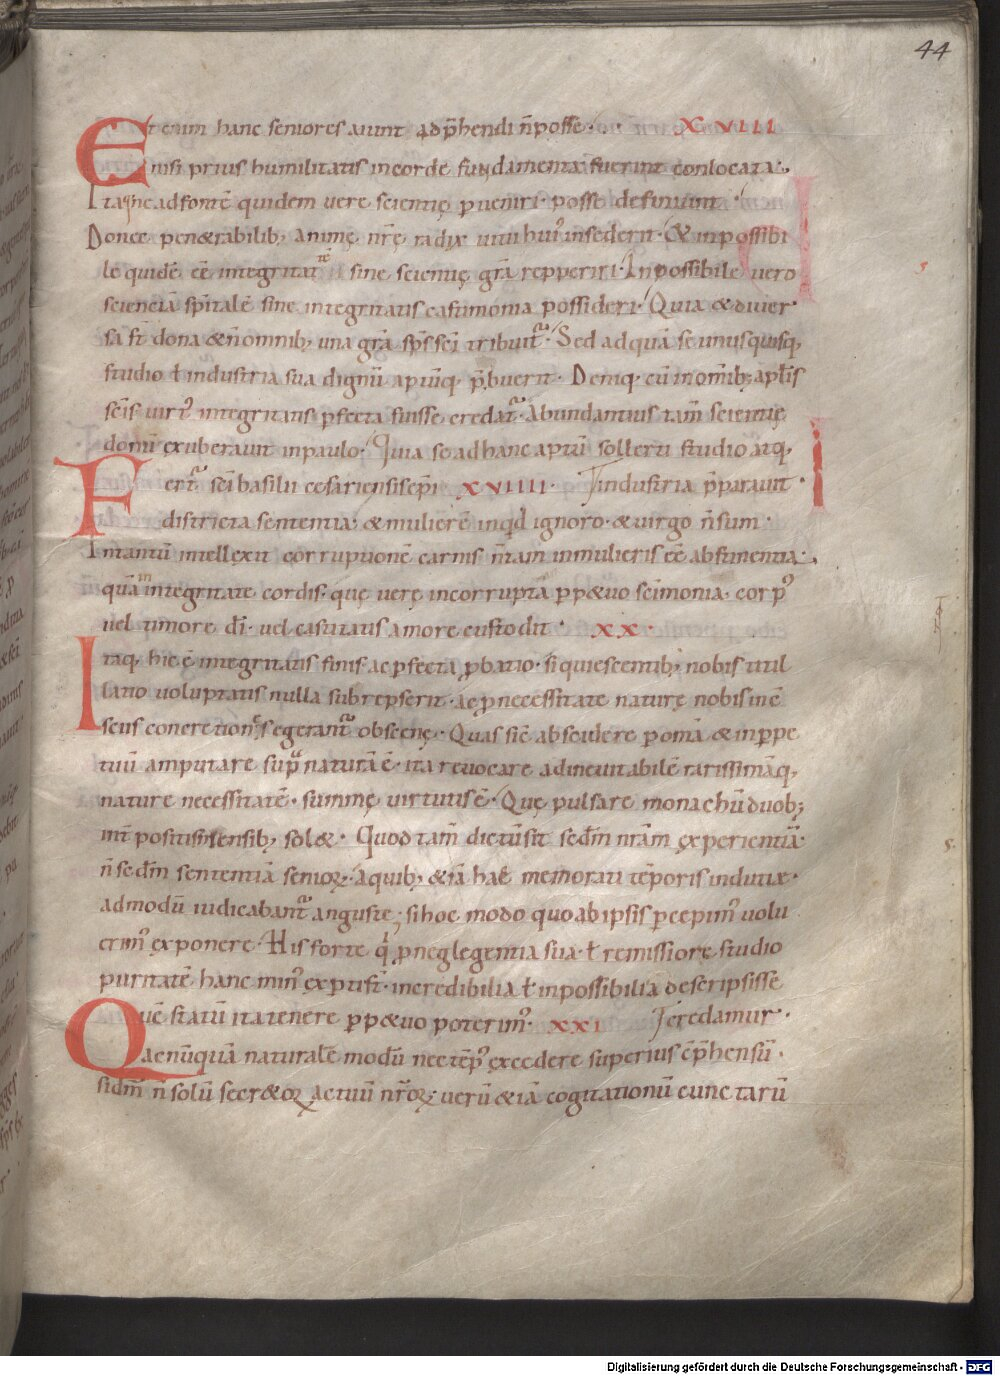 44
Etenim hanc seniores aiunt adp̄hendi n̄ posse· XVIII
nisi prius humilitatis in corde fundamenta fuerint conlocata·
Itaq; ne ad fontē quidem vere scientię pveniri· posse definiunt·
Donec penetrabilib; animę nr̄ę radix vitii hui' insederit· & inpossibi
le quidē eē integritatē sine scientię grā repperiri· Inpossibile vero
scienciā spitalē sine integritatis castimonia possideri· Quia & diver
sa st̄ dona & n̄ omnib; una grā sps̄ sc̄i tribuit᷒· Sed ad quā se unusquisq;
studio ł industria sua dignū aptūq; p̄buerit· Deniq; cū in om̄ib; apłis
sc̄is virt' integritatis pfecta fuisse credat᷒· Abundantius tam̄ scientię
donū exuberavit in paulo· Quia se ad hanc aptū sollerti studio atq;
Fert᷒ sc̄i basilii cesariensis ep̄i XVIIII· industria p̄paravit·
districta sententia· & mulierē inqđ ignoro· & virgo n̄ sum·
Intantū intellexit corruptionē carnis n̄ tam in mulieris eē abstinentia·
quā in integritate cordis· quę verę incorruptā ppetuo sc̄imonia· corp'
vel timore dī· vel castitatis amore custodit· XX·
Itaq; hic ē integritatis finis ac pfecta pbatio· si quiescentib; nobis titil
latio voluptatis nulla subrepserit· ac p necessitate naturę nobis inē
scus concretionēs egerant᷒ obscenę· Quas sic̄ abscidere poma & in ppe
tuū amputare supra naturā ē· ita revocare ad inevitabilē rarissimāq;
nature necessitatē· summę virtutis ē· Quę pulsare monachū duob;
int̄ positis mensib; solet· Quod tam̄ dictū sit secd̄m nr̄am experientiā·
n̄ secd̄m sententiā senior᷒· a quib; etiā hae memorati tēporis indutiae·
ad modū iudicabant᷒ anguste· si hoc modo quo ab ipsis percepim' volu
erim' exponere· His forte qui p neglegentia sua· ł remissiore studio
puritatē hanc minim' expti st̄· incredibilia ł inpossibilia descripsisse
Quē statū ita tenere ppetuo poterim'· XXI credamur·
Ac nūquā naturalē modū nec tēp' excedere superius cp̄hensū·
si dm̄ n̄ solū secretor᷒ actuū nr̄or᷒· verū etiā cogitationū cunctarū
Digitalisierung gefördert durch die Deutsche Forschungsgemeinschaft - DFG